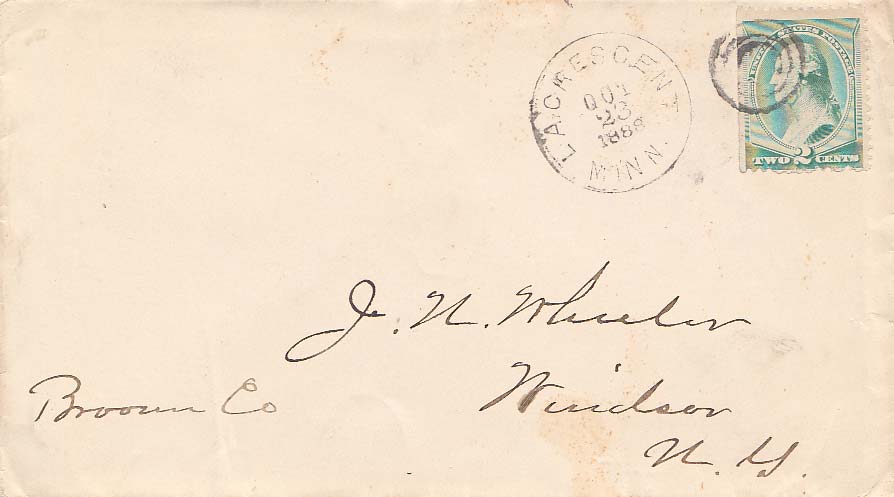 LA CRESCENT
OCT
23
1888
MINN.
UNITED STATES POSTAGE
TWO 2 CENTS
J. N. Wheeler
Windsor
Broome Co
N. Y.